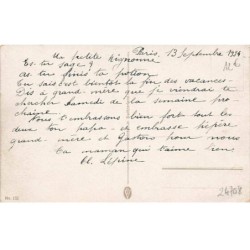 Paris, 13 Septembre 1924
Ma petite mignonne
Es tu sage ?
As tu fini ta potion
En sais est bientôt la fin des vacances-
Dis à grand-mère que je viendrai te
chercher Samedi de la semaine pro
chaine
Nous t'embrassons bien fort tous les
deux ton papa. embrasse Pépère
grand-mère et Gaston pour nous
Ta maman qui t'aime bien
M. Lepine
24708